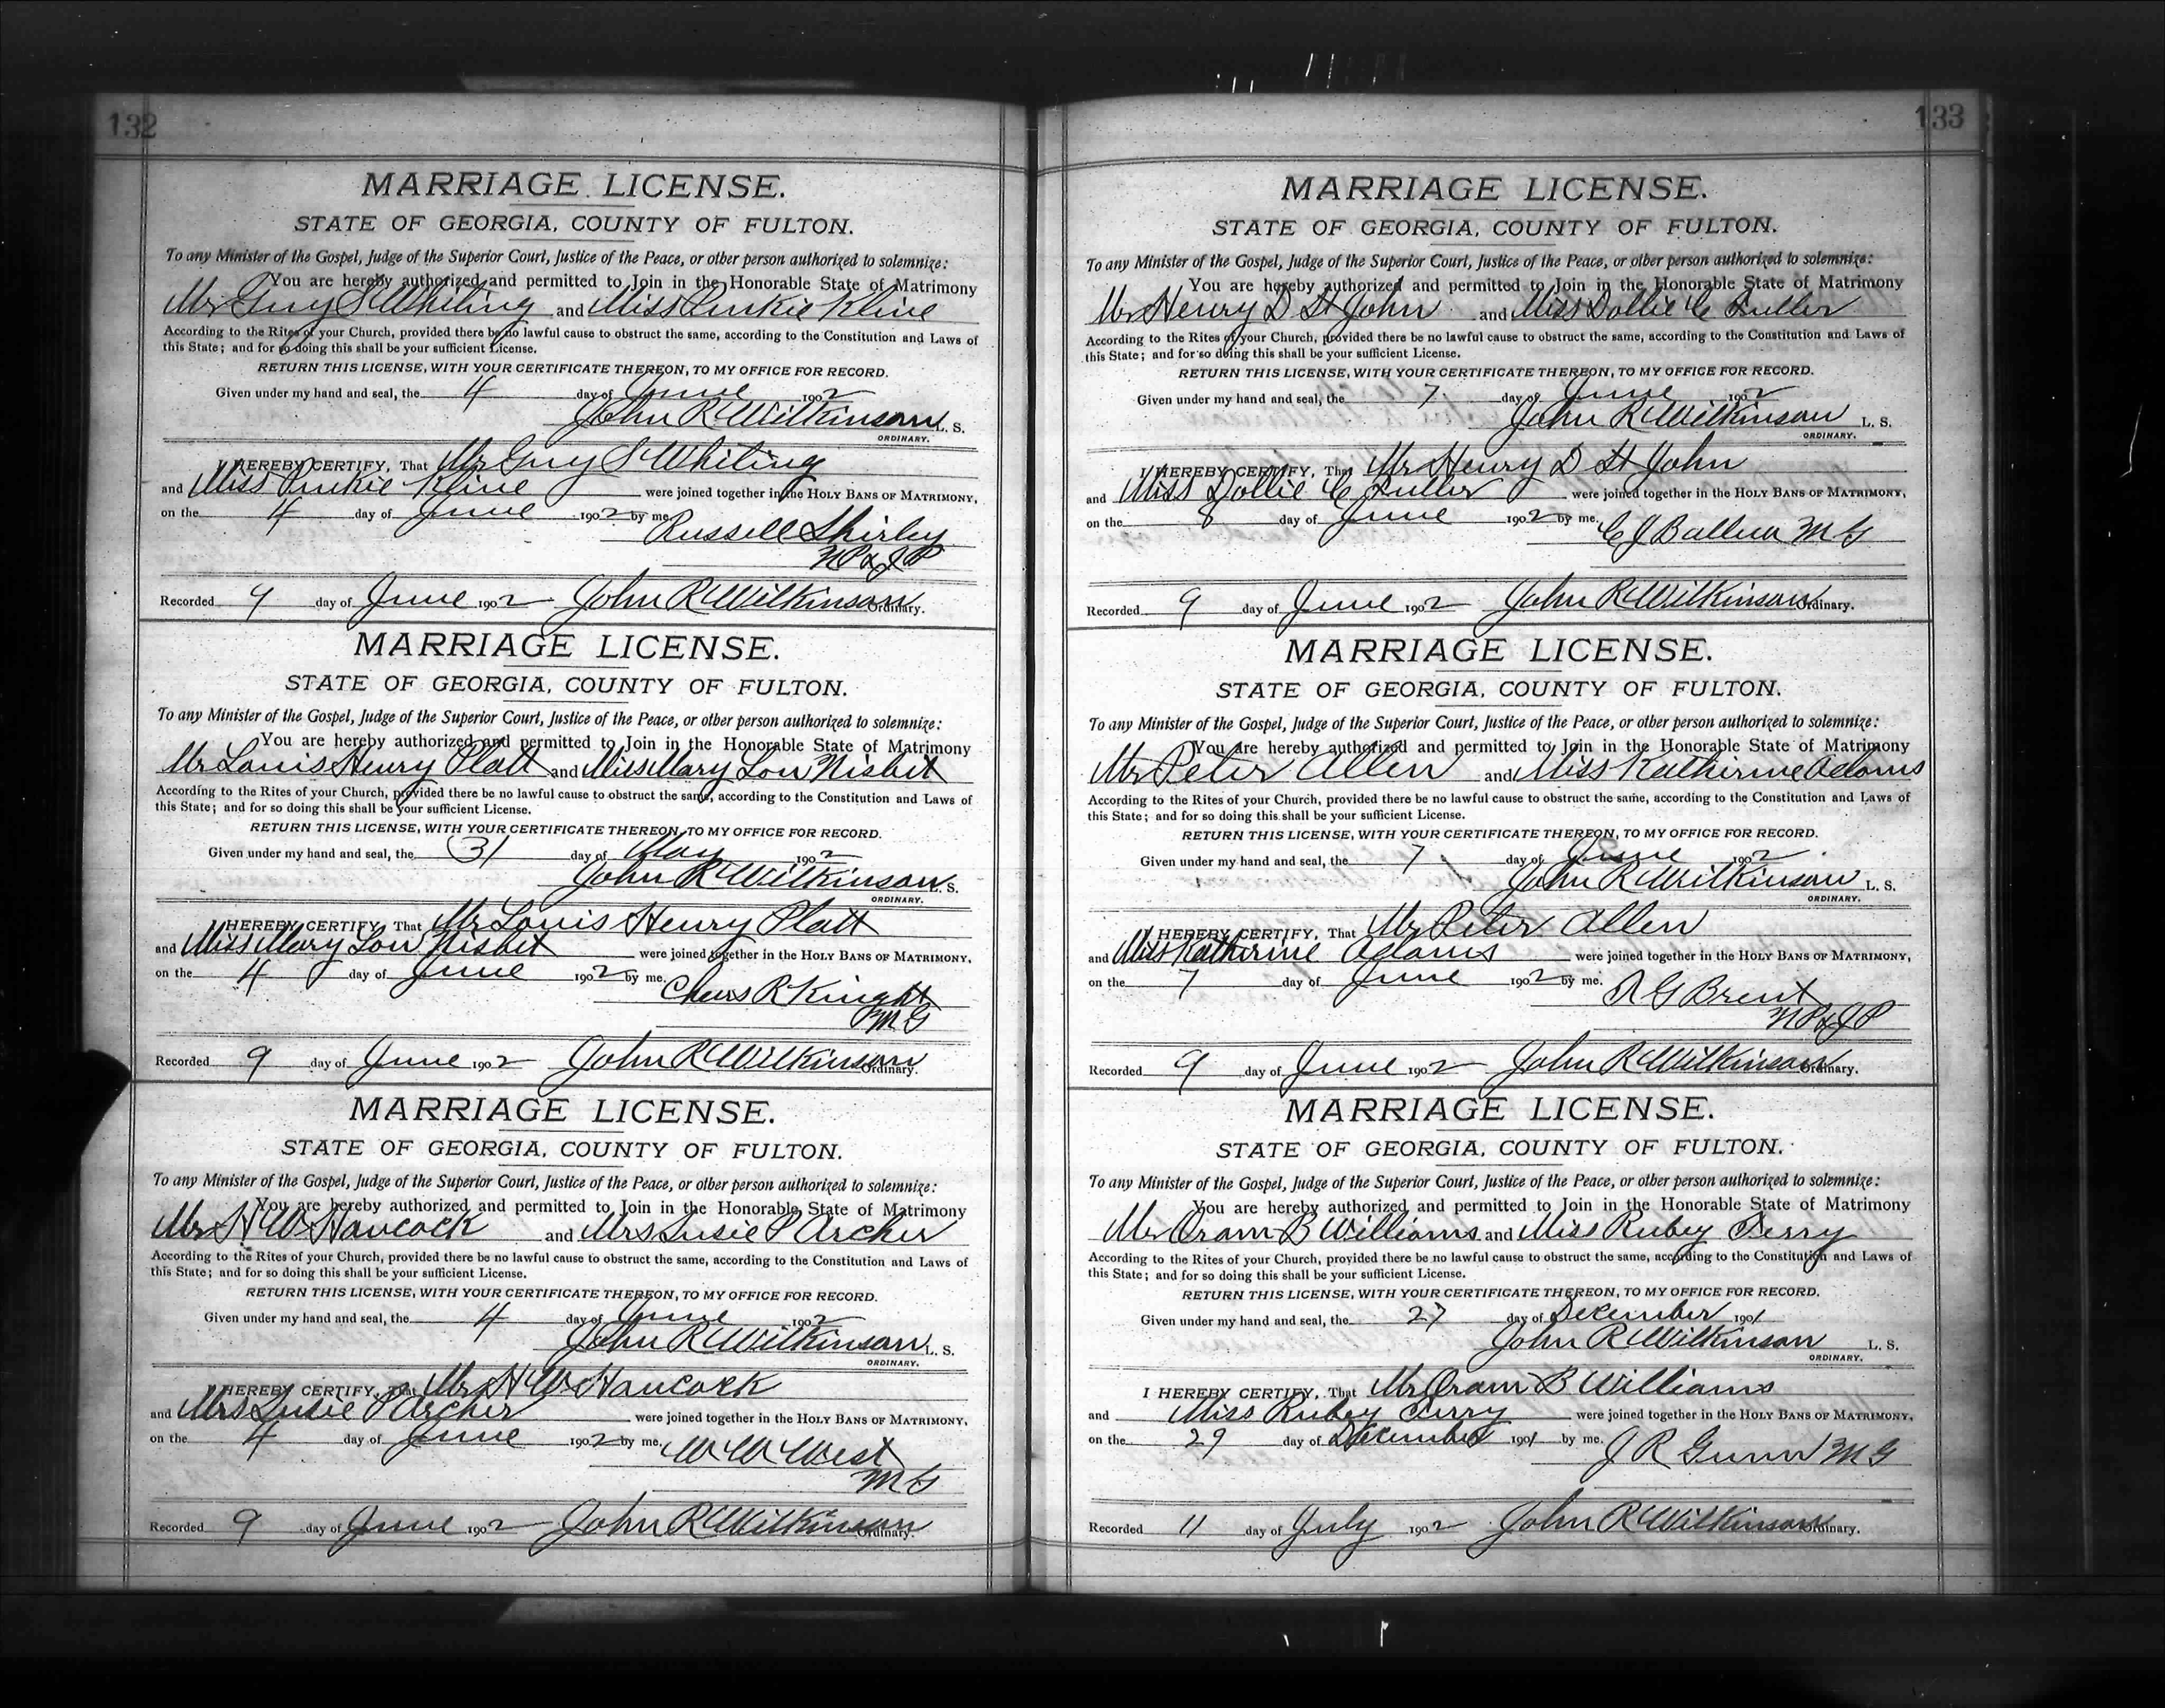 132
MARRIAGE LICENSE.
STATE OF GEORGIA, COUNTY OF FULTON.
To any Minister of the Gospel, Judge of the Superior Court, Justice of the Peace, or other person authorized to solemnize:
You are hereby authorized and permitted to Join in the Honorable State of Matrimony
Mr Guy S Whiting and Miss Pinkie Kline
According to the Rites of your Church, provided there be no lawful cause to obstruct the same, according to the Constitution and Laws of
this State; and for so doing this shall be your sufficient License.
RETURN THIS LICENSE, WITH YOUR CERTIFICATE THEREON, TO MY OFFICE FOR RECORD.
Given under my hand and seal, the 4 day of June 1902
John R Wilkinson L. S.
ORDINARY.
I HEREBY CERTIFY, That Mr Guy S Whiting
and Miss Pinkie Kline were joined together in the HOLY BANS OF MATRIMONY,
on the 4 day of June 1902 by me.
Russell Shirley
NP & JP
Recorded 9 day of June 1902 John R Wilkinson Ordinary.
MARRIAGE LICENSE.
STATE OF GEORGIA, COUNTY OF FULTON.
To any Minister of the Gospel, Judge of the Superior Court, Justice of the Peace, or other person authorized to solemnize:
You are hereby authorized and permitted to Join in the Honorable State of Matrimony
Mr Louis Henry Platt and Miss Mary Lou Nisbit
According to the Rites of your Church, provided there be no lawful cause to obstruct the same, according to the Constitution and Laws of
this State; and for so doing this shall be your sufficient License.
RETURN THIS LICENSE, WITH YOUR CERTIFICATE THEREON, TO MY OFFICE FOR RECORD.
Given under my hand and seal, the 31 day of May 1902
John R Wilkinson L. S.
ORDINARY.
I HEREBY CERTIFY, That Mr Louis Henry Platt
and Miss Mary Lou Nisbit were joined together in the HOLY BANS OF MATRIMONY,
on the 4 day of June 1902 by me.
R Knight
MG
Recorded 9 day of June 1902 John R Wilkinson Ordinary.
MARRIAGE LICENSE.
STATE OF GEORGIA, COUNTY OF FULTON.
To any Minister of the Gospel, Judge of the Superior Court, Justice of the Peace, or other person authorized to solemnize:
You are hereby authorized and permitted to Join in the Honorable State of Matrimony
Mr H W Hancock and Mrs Susie P Archer
According to the Rites of your Church, provided there be no lawful cause to obstruct the same, according to the Constitution and Laws of
this State; and for so doing this shall be your sufficient License.
RETURN THIS LICENSE, WITH YOUR CERTIFICATE THEREON, TO MY OFFICE FOR RECORD.
Given under my hand and seal, the 4 day of June 1902
John R Wilkinson L. S.
ORDINARY.
I HEREBY CERTIFY, That Mr H W Hancock
and Mrs Susie P Archer were joined together in the HOLY BANS OF MATRIMONY,
on the 4 day of June 1902 by me.
W W West
MG
Recorded 9 day of June 1902 John R Wilkinson Ordinary.
133
MARRIAGE LICENSE.
STATE OF GEORGIA, COUNTY OF FULTON.
To any Minister of the Gospel, Judge of the Superior Court, Justice of the Peace, or other person authorized to solemnize:
You are hereby authorized and permitted to Join in the Honorable State of Matrimony
Mr Henry D St John and Miss Dollie C Fuller
According to the Rites of your Church, provided there be no lawful cause to obstruct the same, according to the Constitution and Laws of
this State; and for so doing this shall be your sufficient License.
RETURN THIS LICENSE, WITH YOUR CERTIFICATE THEREON, TO MY OFFICE FOR RECORD.
Given under my hand and seal, the 7 day of June 1902
John R Wilkinson L. S.
ORDINARY.
I HEREBY CERTIFY, That Mr Henry D St John
and Miss Dollie C Fuller were joined together in the HOLY BANS OF MATRIMONY,
on the 8 day of June 1902 by me.
C J Ballew MG
Recorded 9 day of June 1902 John R Wilkinson Ordinary.
MARRIAGE LICENSE.
STATE OF GEORGIA, COUNTY OF FULTON.
To any Minister of the Gospel, Judge of the Superior Court, Justice of the Peace, or other person authorized to solemnize:
You are hereby authorized and permitted to Join in the Honorable State of Matrimony
Mr Peter Allen and Miss Katherine Adams
According to the Rites of your Church, provided there be no lawful cause to obstruct the same, according to the Constitution and Laws of
this State; and for so doing this shall be your sufficient License.
RETURN THIS LICENSE, WITH YOUR CERTIFICATE THEREON, TO MY OFFICE FOR RECORD.
Given under my hand and seal, the 7 day of June 1902
John R Wilkinson L. S.
ORDINARY.
I HEREBY CERTIFY, That Mr Peter Allen
and Miss Katherine Adams were joined together in the HOLY BANS OF MATRIMONY,
on the 7 day of June 1902 by me.
G Brent
NP & JP
Recorded 9 day of June 1902 John R Wilkinson Ordinary.
MARRIAGE LICENSE.
STATE OF GEORGIA, COUNTY OF FULTON.
To any Minister of the Gospel, Judge of the Superior Court, Justice of the Peace, or other person authorized to solemnize:
You are hereby authorized and permitted to Join in the Honorable State of Matrimony
Mr Oram B Williams and Miss Rubey Terry
According to the Rites of your Church, provided there be no lawful cause to obstruct the same, according to the Constitution and Laws of
this State; and for so doing this shall be your sufficient License.
RETURN THIS LICENSE, WITH YOUR CERTIFICATE THEREON, TO MY OFFICE FOR RECORD.
Given under my hand and seal, the 27 day of December 1901
John R Wilkinson L. S.
ORDINARY.
I HEREBY CERTIFY, That Mr Oram B Williams
and Miss Rubey Terry were joined together in the HOLY BANS OF MATRIMONY,
on the 29 day of December 1901 by me.
J R Gunn MG
Recorded 11 day of July 1902 John R Wilkinson Ordinary.